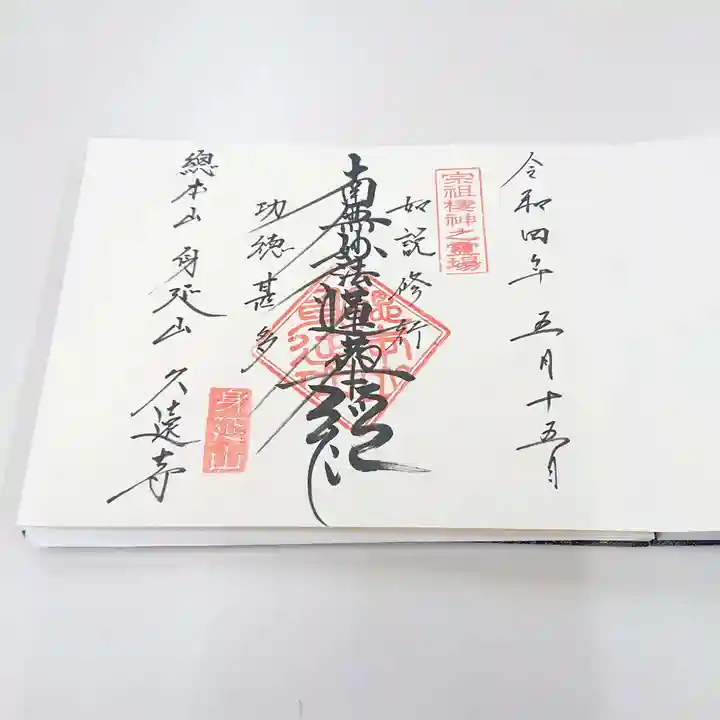 令和四年 五月十五日
宗祖棲神之霊場
如説修行
南無妙法蓮華経
功徳甚多
身延山
總本山 身延山 久遠寺